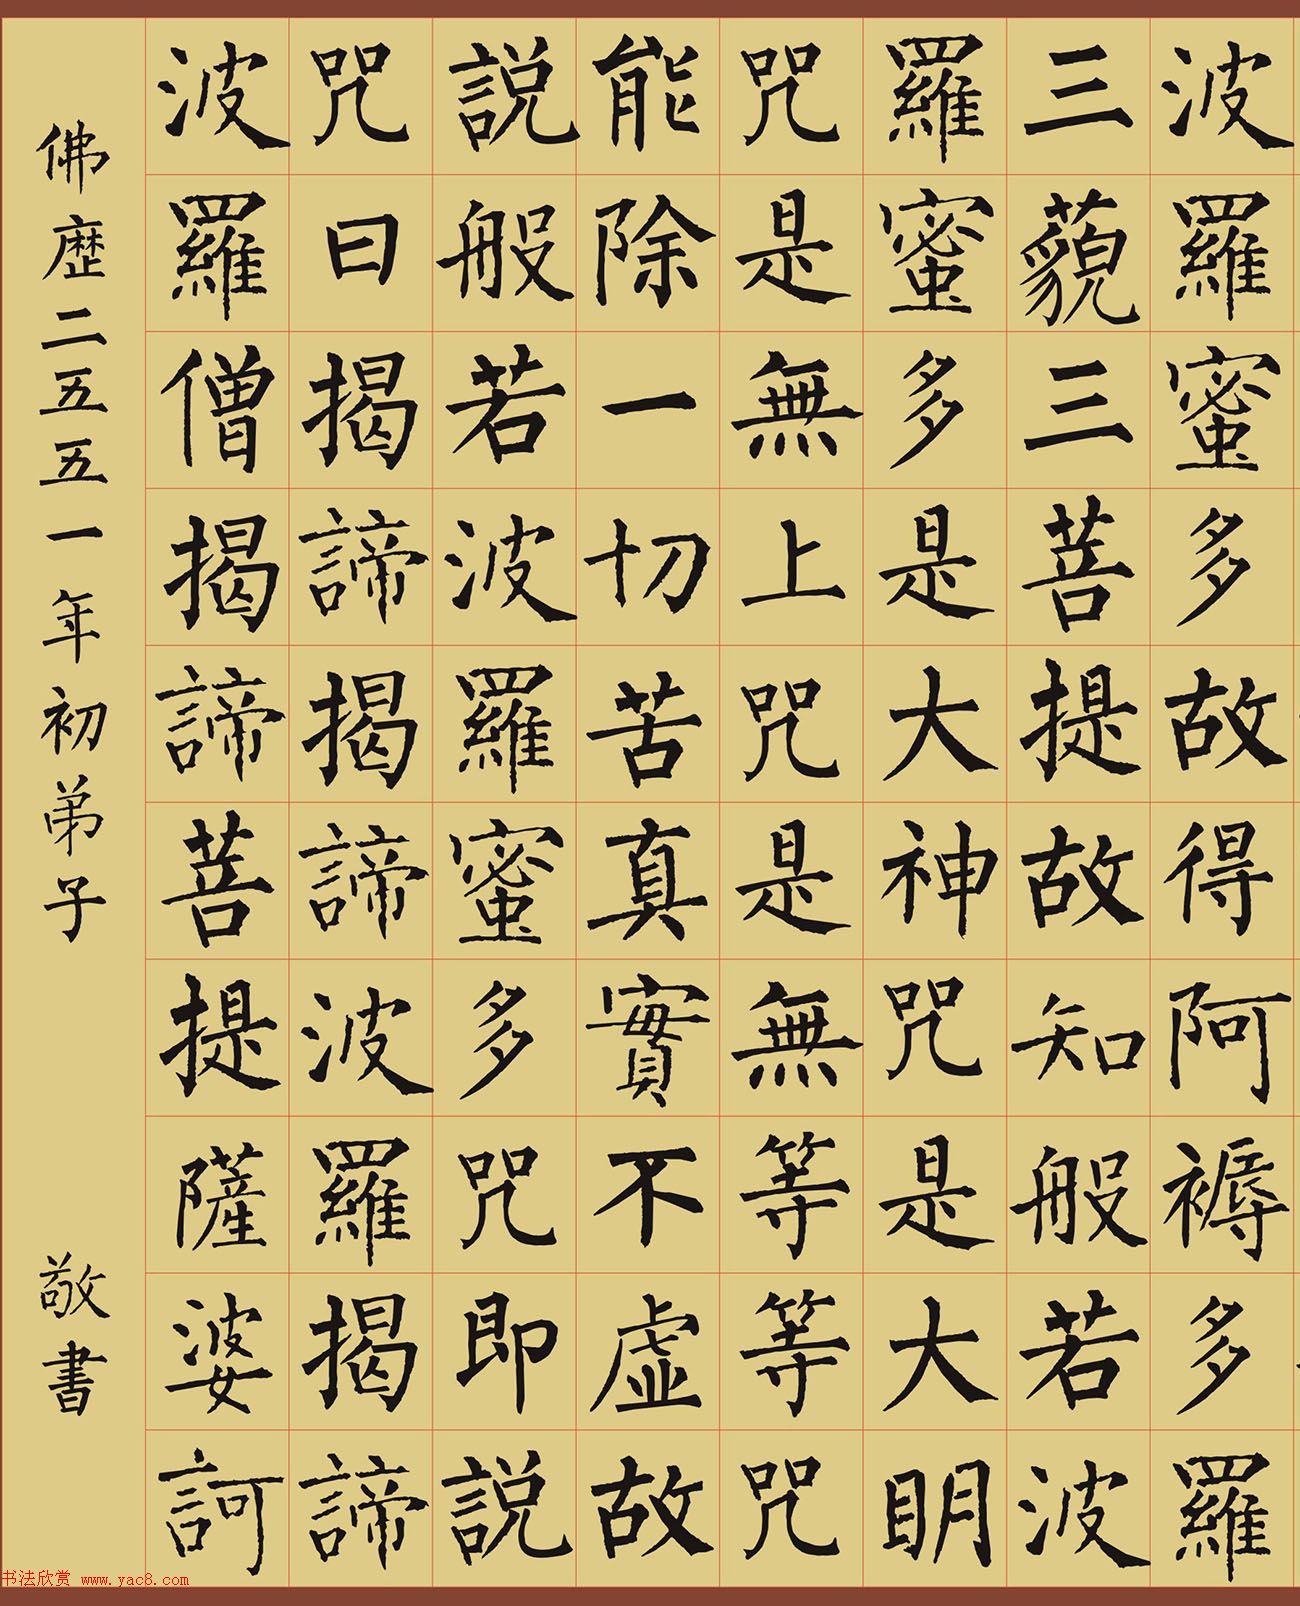 波羅蜜多故得阿褥多羅
三藐三菩提故知般若波
羅蜜多是大神咒是大明
咒是無上咒是無等等咒
能除一切苦真實不虛故
説般若波羅蜜多咒即説
咒曰揭諦揭諦波羅揭諦
波羅僧揭諦菩提薩婆訶
佛歷二五五一年初弟子
敬書
书法欣赏 www.yac8.com